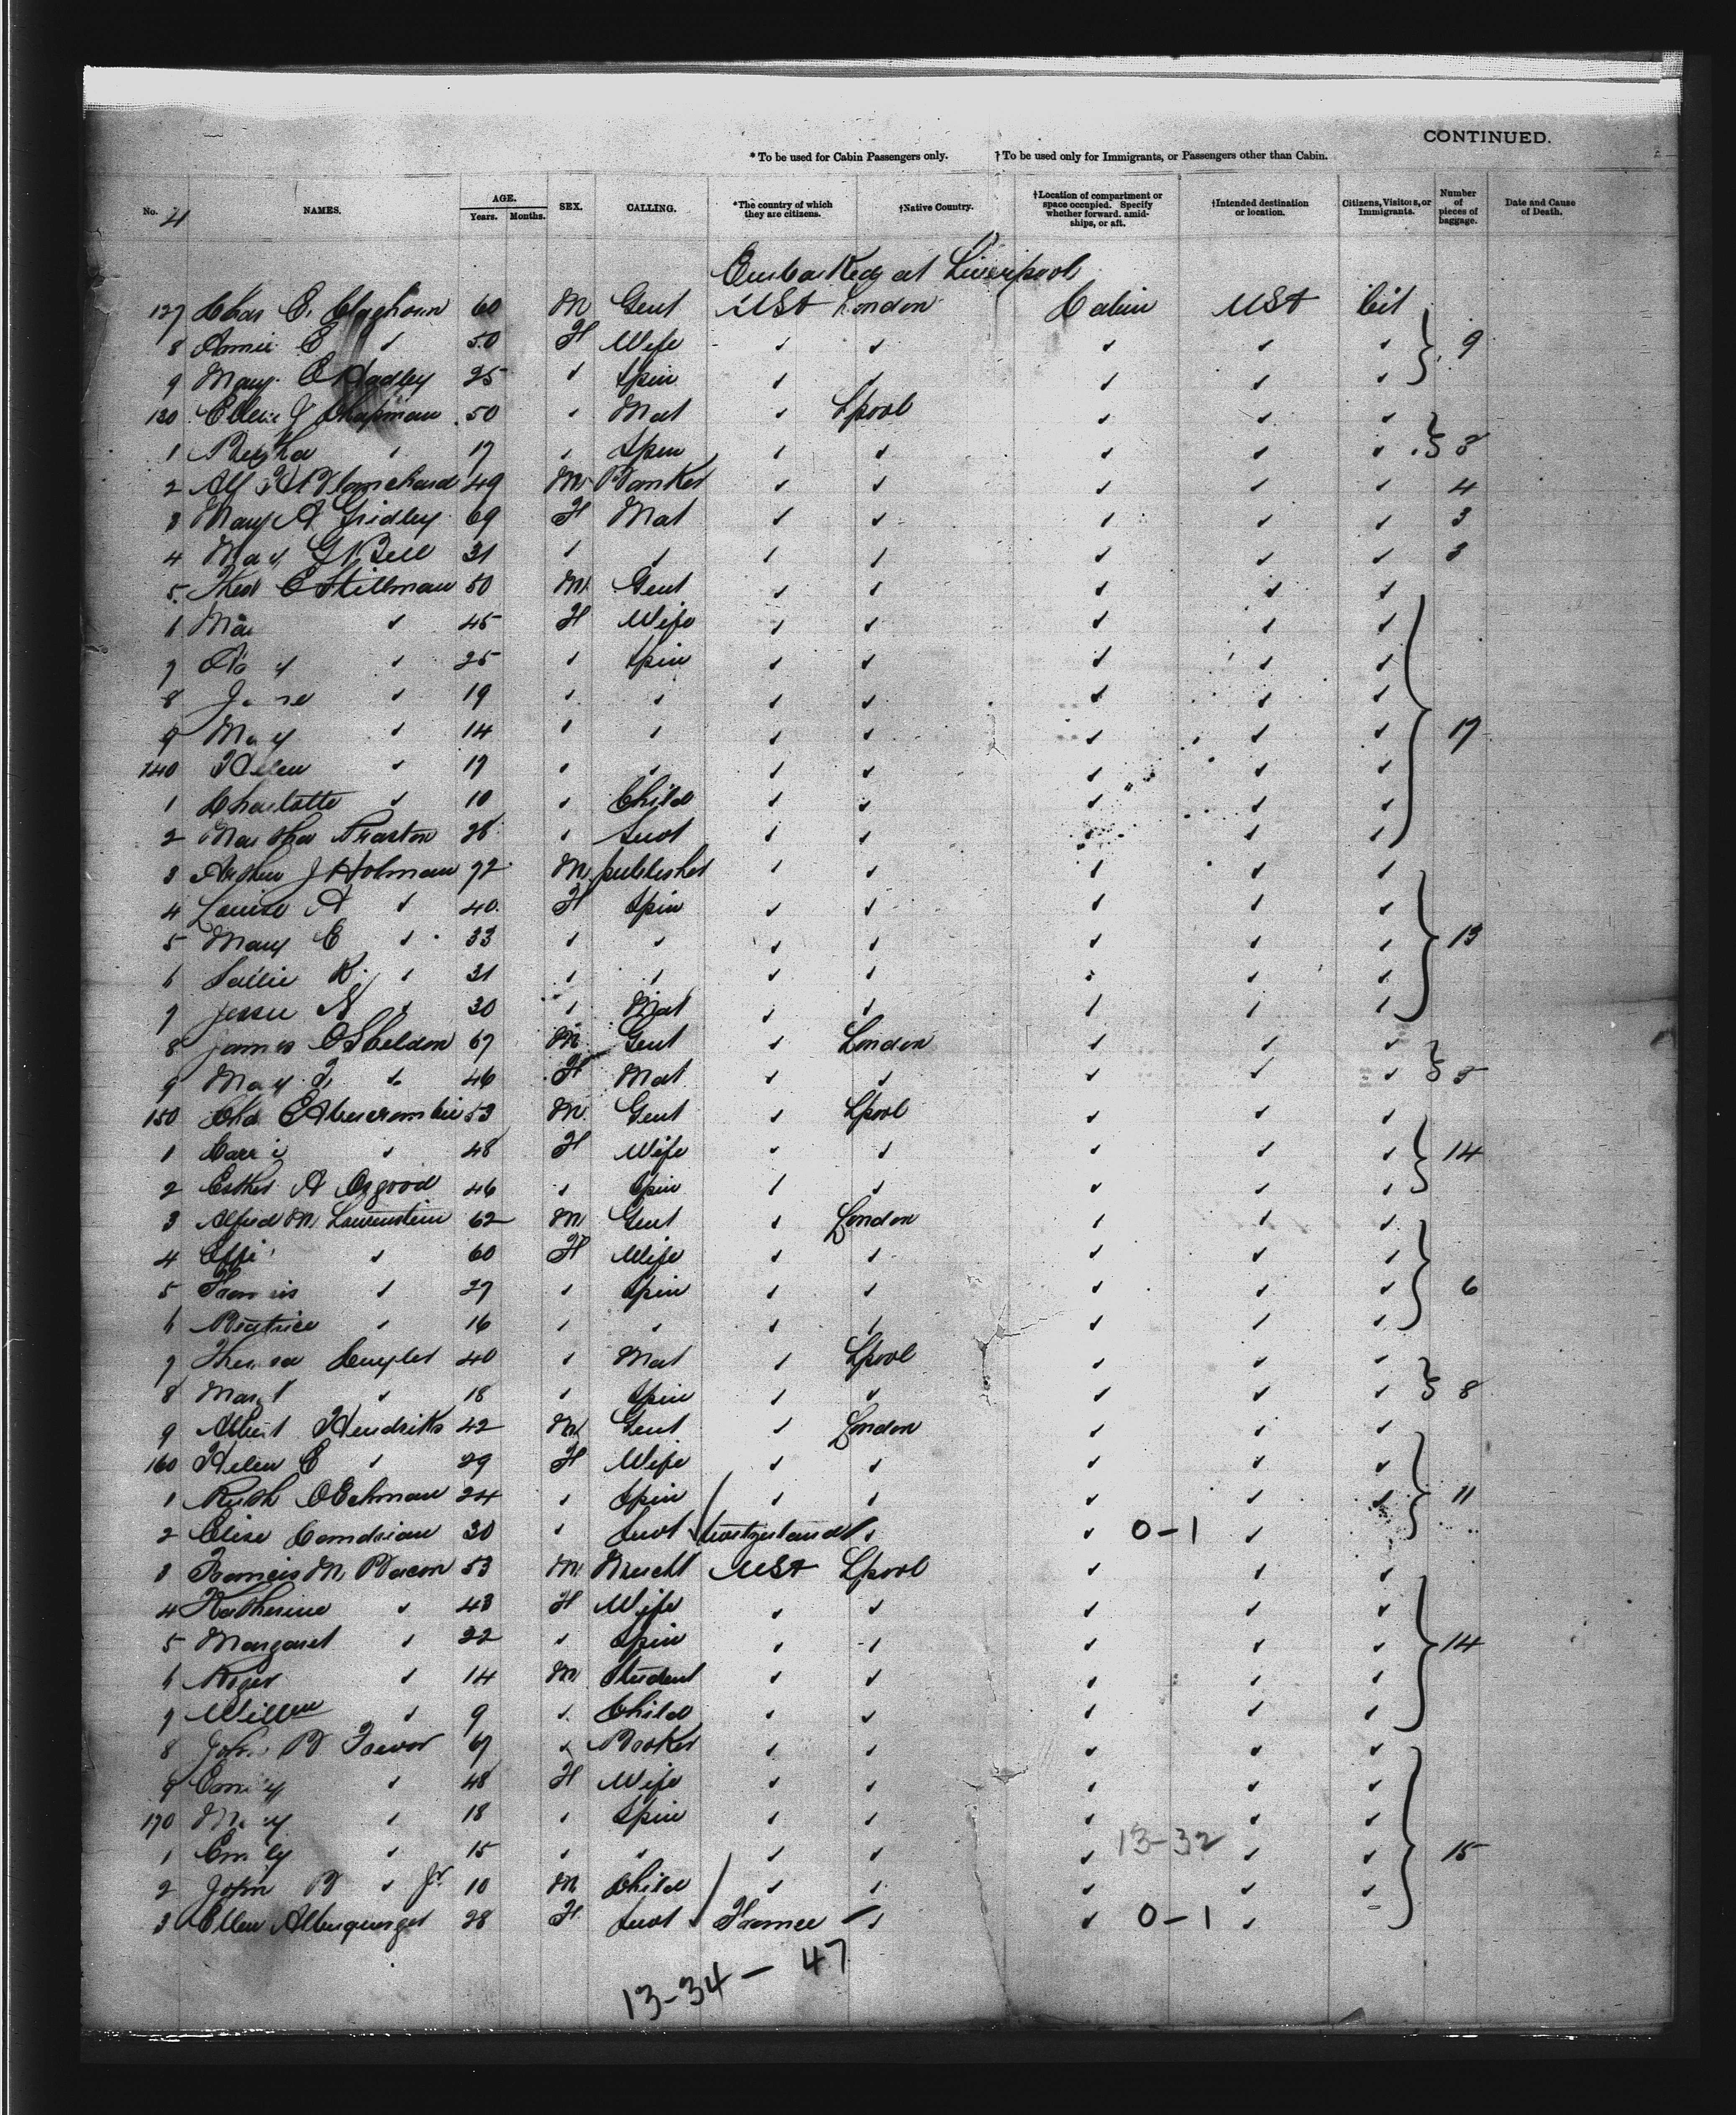 CONTINUED.
*To be used for Cabin Passengers only. †To be used only for Immigrants, or Passengers other than Cabin.
No. 4 NAMES. AGE. Years. Months. SEX. CALLING. *The country of which they are citizens. †Native Country. †Location of compartment or space occupied. Specify whether forward. amidships, or aft. †Intended destination or location. Citizens, Visitors, or Immigrants. Number of pieces of baggage. Date and Cause of Death.
Embarked at Liverpool
127 Chas E. Claghorn 60 M Gent USA London Cabin USA Cit
8 Annie E ✓ 50 F Wife ✓ ✓ ✓ ✓ ✓ 9
9 Mary E Hadley 25 ✓ Spin ✓ ✓ ✓ ✓ ✓
130 Ellen J Chapman 50 ✓ Mat ✓ Lpool ✓ ✓ ✓
1 Bertha ✓ 17 ✓ Spin ✓ ✓ ✓ ✓ ✓ 3
2 Alf H Blanchard 49 M Banker ✓ ✓ ✓ ✓ ✓ 4
3 Mary A Gridley 69 F Mat ✓ ✓ ✓ ✓ ✓ 3
4 May G Bell 31 ✓ ✓ ✓ ✓ ✓ ✓ ✓ 3
5 Thos E Stillman 50 M Gent ✓ ✓ ✓ ✓ ✓
6 ✓ 45 F Wife ✓ ✓ ✓ ✓ ✓
7 ✓ 25 ✓ Spin ✓ ✓ ✓ ✓ ✓
8 ✓ 19 ✓ ✓ ✓ ✓ ✓ ✓ ✓
9 May ✓ 14 ✓ ✓ ✓ ✓ ✓ ✓ ✓ 17
140 Helen ✓ 17 ✓ ✓ ✓ ✓ ✓ ✓ ✓
1 Charlotte ✓ 10 ✓ Child ✓ ✓ ✓ ✓ ✓
2 Martha 28 ✓ Servt ✓ ✓ ✓ ✓ ✓
3 Arthur J Holman 72 M publisher ✓ ✓ ✓ ✓ ✓
4 Louise A ✓ 40 F Spin ✓ ✓ ✓ ✓ ✓
5 Mary E ✓ 33 ✓ ✓ ✓ ✓ ✓ ✓ ✓ 13
6 Sallie K ✓ 31 ✓ ✓ ✓ ✓ ✓ ✓ ✓
7 Jessie ✓ 30 ✓ Mat ✓ ✓ ✓ ✓ ✓
8 James O Sheldon 67 M Gent ✓ London ✓ ✓ ✓
9 May F ✓ 46 F Mat ✓ ✓ ✓ ✓ ✓ 5
150 Cha E Abercrombie 53 M Gent ✓ Lpool ✓ ✓ ✓
1 Carrie ✓ 48 F Wife ✓ ✓ ✓ ✓ ✓ 14
2 Esther A Osgood 46 ✓ Spin ✓ ✓ ✓ ✓ ✓
3 Alfred M Lowenstein 62 M Gent ✓ London ✓ ✓ ✓
4 Effi ✓ 60 F Wife ✓ ✓ ✓ ✓ ✓
5 Francis ✓ 27 ✓ Spin ✓ ✓ ✓ ✓ ✓ 6
6 Beatrice ✓ 16 ✓ ✓ ✓ ✓ ✓ ✓
7 Theresa 40 ✓ Mat ✓ Lpool ✓ ✓ ✓
8 Margt ✓ 18 ✓ Spin ✓ ✓ ✓ ✓ ✓ 8
9 Albert Hendriks 42 M Gent ✓ London ✓ ✓ ✓
160 Helen E ✓ 29 F Wife ✓ ✓ ✓ ✓ ✓
1 Ruth 24 ✓ Spin ✓ ✓ ✓ ✓ ✓ 11
2 Elise Comdrian 30 ✓ Servt Switzerland ✓ ✓ 0-1 ✓
3 Francis M Bacon 53 M Mercht USA Lpool ✓ ✓ ✓
4 Katherine ✓ 43 F Wife ✓ ✓ ✓ ✓ ✓
5 Margaret ✓ 22 ✓ Spin ✓ ✓ ✓ ✓ ✓ 14
6 Roger ✓ 14 M Student ✓ ✓ ✓ ✓ ✓
7 Willm ✓ 9 ✓ Child ✓ ✓ ✓ ✓ ✓
8 John B Trevor 67 ✓ Broker ✓ ✓ ✓ ✓ ✓
9 Emily ✓ 48 F Wife ✓ ✓ ✓ ✓ ✓
170 May ✓ 18 ✓ Spin ✓ ✓ ✓ ✓ ✓
1 Emily ✓ 15 ✓ ✓ ✓ ✓ ✓ 13-32 ✓ ✓ 15
2 John B ✓ Jr 10 M Child ✓ ✓ ✓ ✓ ✓
3 Ellen Albuquerger 28 F Servt France ✓ ✓ 0-1 ✓
13-34 — 47